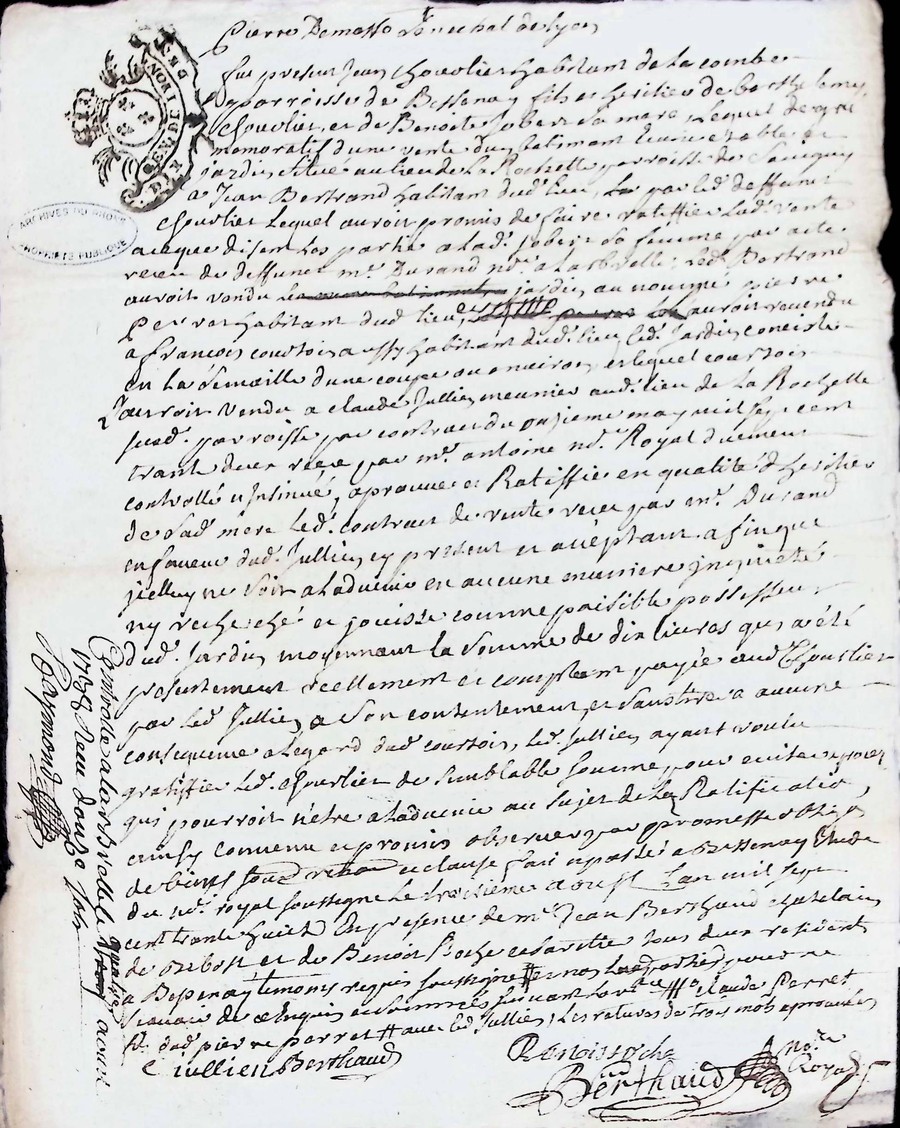 Pierre Demasso Senechal de lyon
fut present Jean Chouvlier habitant de la combe
parroisse de Bessenay fils et heritier de barthelemy
Chouvlier, et de Benoite Jobert sa mere, Lequel
memoratif d'une vente du batiment Ecurie etable et
jardin situé au lieu de La Rochelle parroisse de Savigny
a Jean Bertrand habitant dud. lieu, par led. deffunt
Chouvlier Lequel auroit promis de faire ratiffier lad. vente
a ce que disent les partie a lad. Jobert sa femme par acte
receu de deffunct me. Durand nore. a Larbrelle; Led. Bertrand
auroit vendu jardin au nommé pierre
Perret habitant dud. lieu, auroit revendu
a francois courtois aussy habitant dud. lieu led. Jardin, consiste
en la semaille d'une coupe ou environ, et lequel courtois
L'auroit vendu a claude Jullien meunier aud. lieu de La Rochelle
susd. parroisse par contract du onzieme may mil sept cent
trante deux receu par me. antoine nore. Royal duement
controllé et insinué, aprouve et Ratiffie en qualité d'heritier
de sad. mere led. contract de vente receu par me. Durand
en faveur dud. Jullien, present et acceptant affin que
jcelluy ne soit a l'advenir en aucune manniere inquieté
ny recherché et jouisse comme paisible possesseur
dud. Jardin, moyennant la somme de dix livres qui a été
presentement reellement et comptant payée aud. Chouvlier
par led. Jullien, a son contentement, et sans tire a aucune
consequence a l'egard dud. courtois, led. Jullien ayant voulu
gratiffier led. Chouvlier de semblable somme pour eviter a procez
qui pourroit n'etre a l'advenir au sujet de la Ratification,
ainsy convenu et promis observer par promesse oblig.
de biens et clause fait et passé a Bessenay Etude
du nore. royal soussigné Le troisieme aoust L'an mil sept
cent trante huict En presence de me. Jean Berthaud chatelain
de et de Benoit Roche tous deux residents
a Bessenay temoins requis soussignés non pour ne
scavoir de ce Enquis et sommés suivant claude Perret
dud. pierre perret avec led. Jullien, Les ratures de trois mots aprouvées
C jullien Berthaud
Benoist roche
Berthaud
nore.
Royal
Controllé a larbrelle le
quatre aoust
1738 Receu douze sols
Raymond
GEN. DE LION
ARCHIVES DU RHONE
PROPRIETE PUBLIQUE